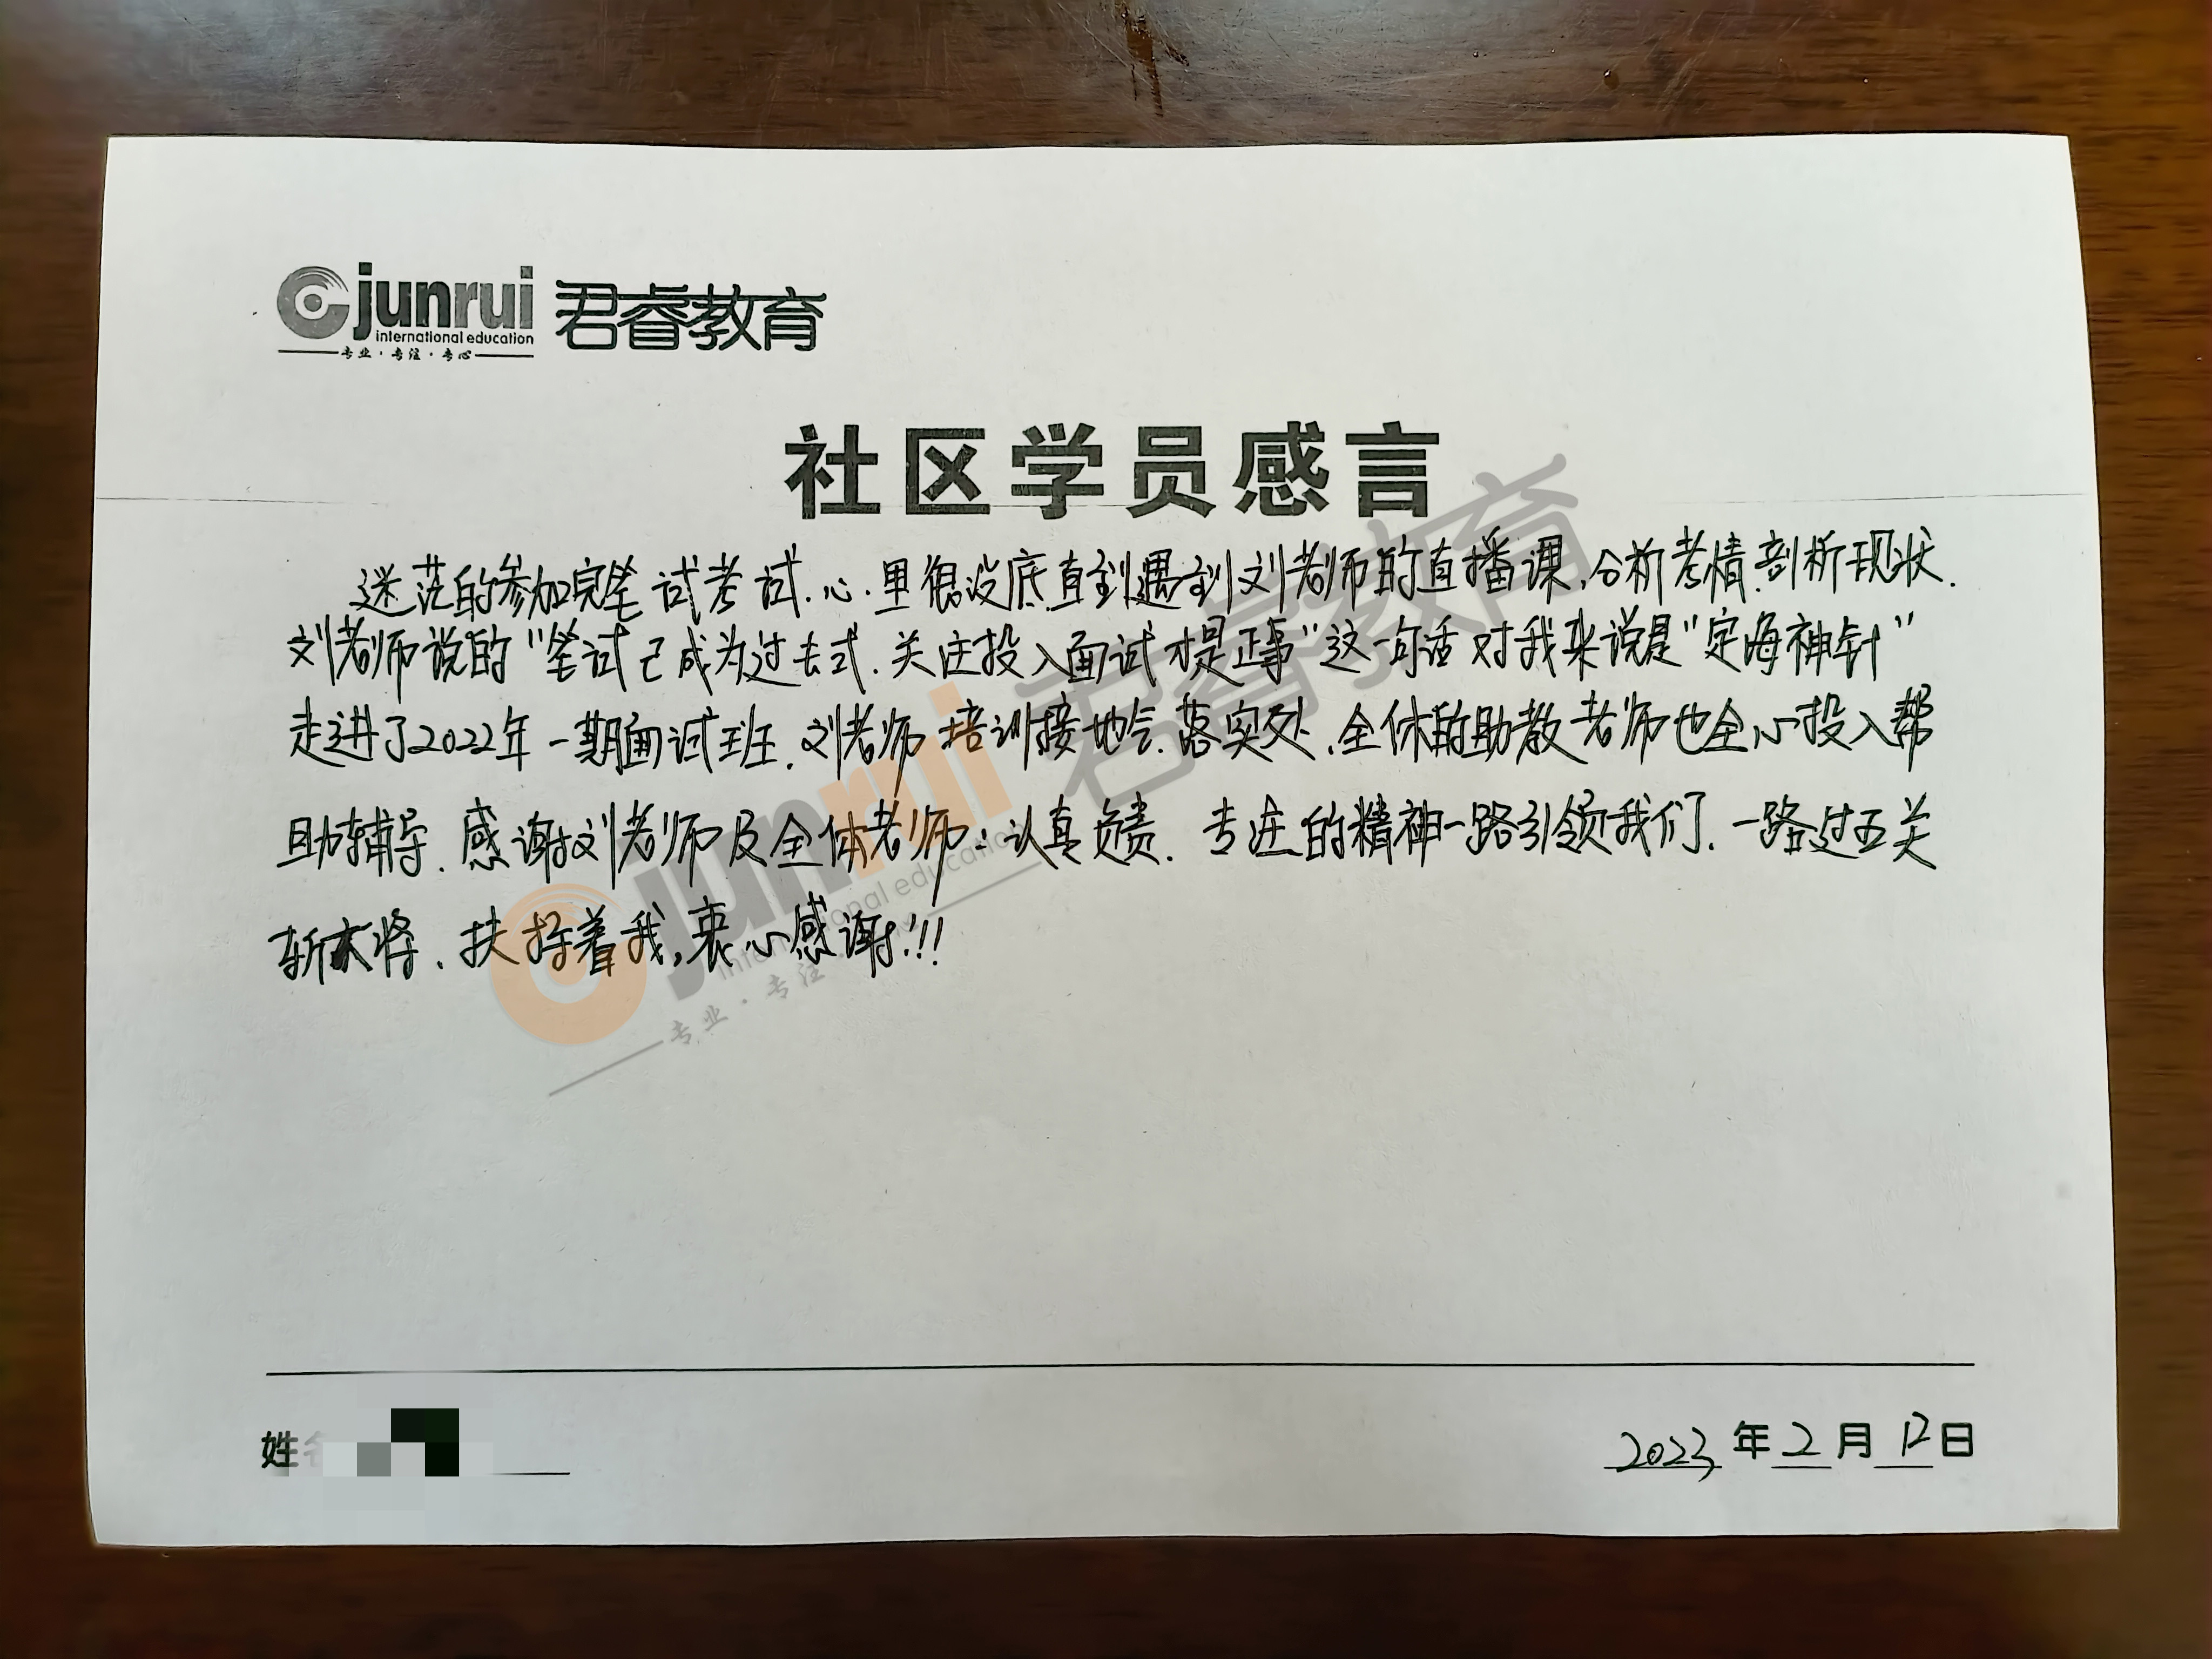 junrui 君睿教育
international education
专业·专注·专心
社区学员感言
迷茫的参加完笔试考试.心里很没底.直到遇到刘老师的直播课.分析考情.剖析现状.
刘老师说的“笔试已成为过去式.关注投入面试才是正事”这一句话对我来说是“定海神针”
走进了2022年一期面试班.刘老师培训接地气.落实处.全体的助教老师也全心投入帮
助辅导.感谢刘老师及全体老师:认真负责.专注的精神一路引领我们.一路过五关
斩六将.扶持着我,衷心感谢!!!
junrui 君睿教育
international education
专业·专注
姓名
2023年2月12日